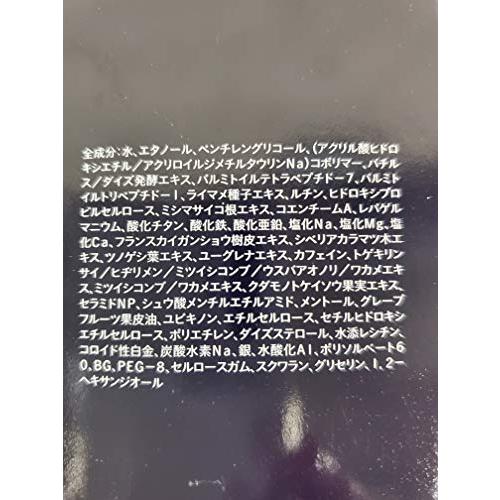 全成分:水、エタノール、ペンチレングリコール、(アクリル酸ヒドロ
キシエチル/アクリロイルジメチルタウリンNa)コポリマー、バチル
ス/ダイズ発酵エキス、パルミトイルテトラペプチドー7、パルミト
イルトリペプチドーⅠ、ライマメ種子エキス、ルチン、ヒドロキシプロ
ピルセルロース、ミシマサイコ根エキス、コエンチームA、レパゲル
マニウム、酸化チタン、酸化鉄、酸化亜鉛、塩化Na、塩化Mg、塩
化Ca、フランスカイガンショウ樹皮エキス、シベリアカラマツ木エ
キス、ツノゲシ葉エキス、ユーグレナエキス、カフェイン、トゲキリン
サイ/ヒヂリメン/ミツイシコンブ/ウスバアオノリ/ワカメエキ
ス、ミツイシコンブ/ワカメエキス、クダモノトケイソウ果実エキス、
セラミドNP、シュウ酸メンチルエチルアミド、メントール、グレープ
フルーツ果皮油、ユビキノン、エチルセルロース、セチルヒドロキシ
エチルセルロース、ポリエチレン、ダイズステロール、水添レシチン、
コロイド性白金、炭酸水素Na、銀、水酸化AI、ポリソルベート6
0、BG、PEG-8、セルロースガム、スクワラン、グリセリン、1、2-
ヘキサンジオール